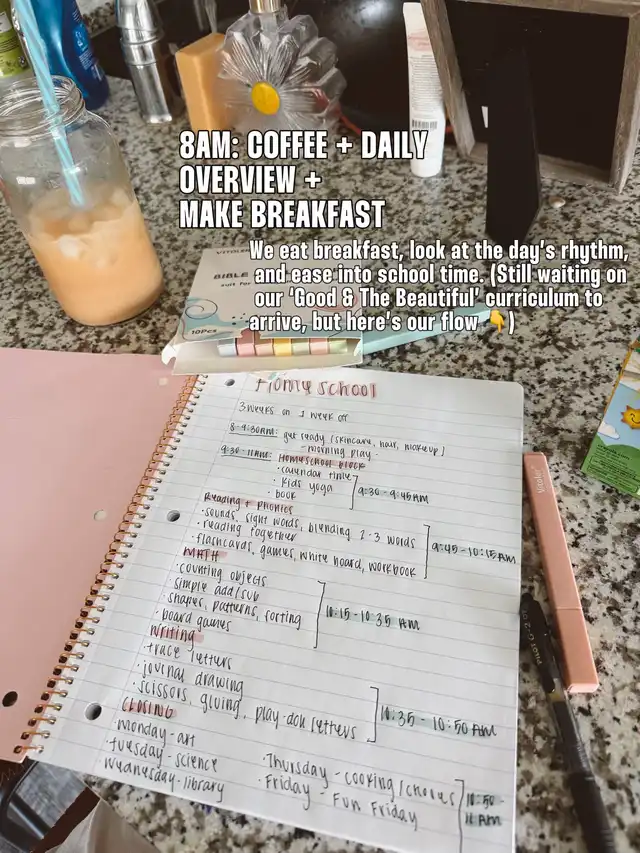 8AM: COFFEE + DAILY
OVERVIEW +
MAKE BREAKFAST
We eat breakfast, look at the day's rhythm,
and ease into school time. (Still waiting on
our 'Good & The Beautiful' curriculum to
arrive, but here's our flow 👇)
BIBLE
suit for
10Pcs
Homeschool
3 weeks on 1 week off
8-9:30AM: get ready (skincare, hair, makeup)
- morning play
9:30-11AM: Homeschool Block
• calendar time
• kids yoga
• book
9:30-9:45AM
Reading + Phonics
• sounds, sight words, blending 2-3 words
• reading together
• flashcards, games, white board, workbook
9:45-10:15AM
MATH
• counting objects
• simple add/sub
• shapes, patterns, sorting
• board games
10:15-10:35 AM
Writing
• trace letters
• journal drawing
• scissors, gluing, play-doh letters
10:35-10:50AM
CLOSING
• monday-art
• tuesday-science
wednesday-library
• Thursday - cooking/chores
• Friday - Fun Friday
10:50-
11 AM
Vitoler
PILOT G-2